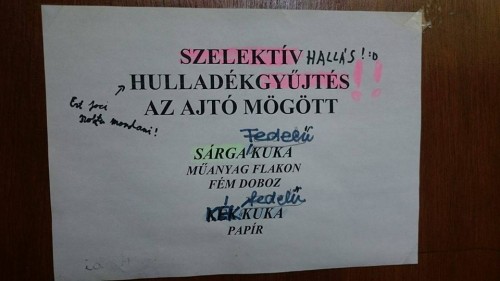 SZELEKTÍV HALLÁS! :D
HULLADÉKGYŰJTÉS!!
AZ AJTÓ MÖGÖTT
Ezt
mondani!
Fedelű
SÁRGA KUKA
MŰANYAG FLAKON
FÉM DOBOZ
fedelű
KÉK KUKA
PAPÍR